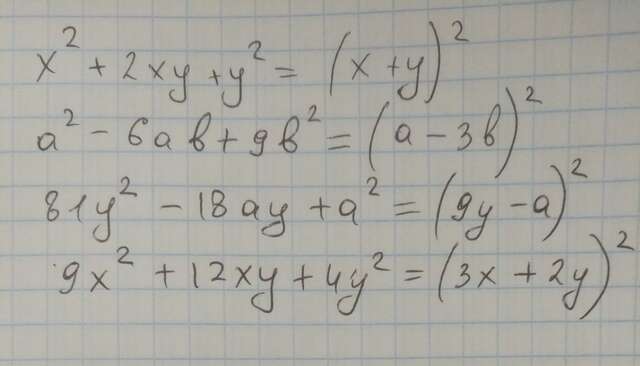 x² + 2xy + y² = (x + y)²
a² - 6ab + 9b² = (a - 3b)²
81y² - 18ay + a² = (9y - a)²
9x² + 12xy + 4y² = (3x + 2y)²